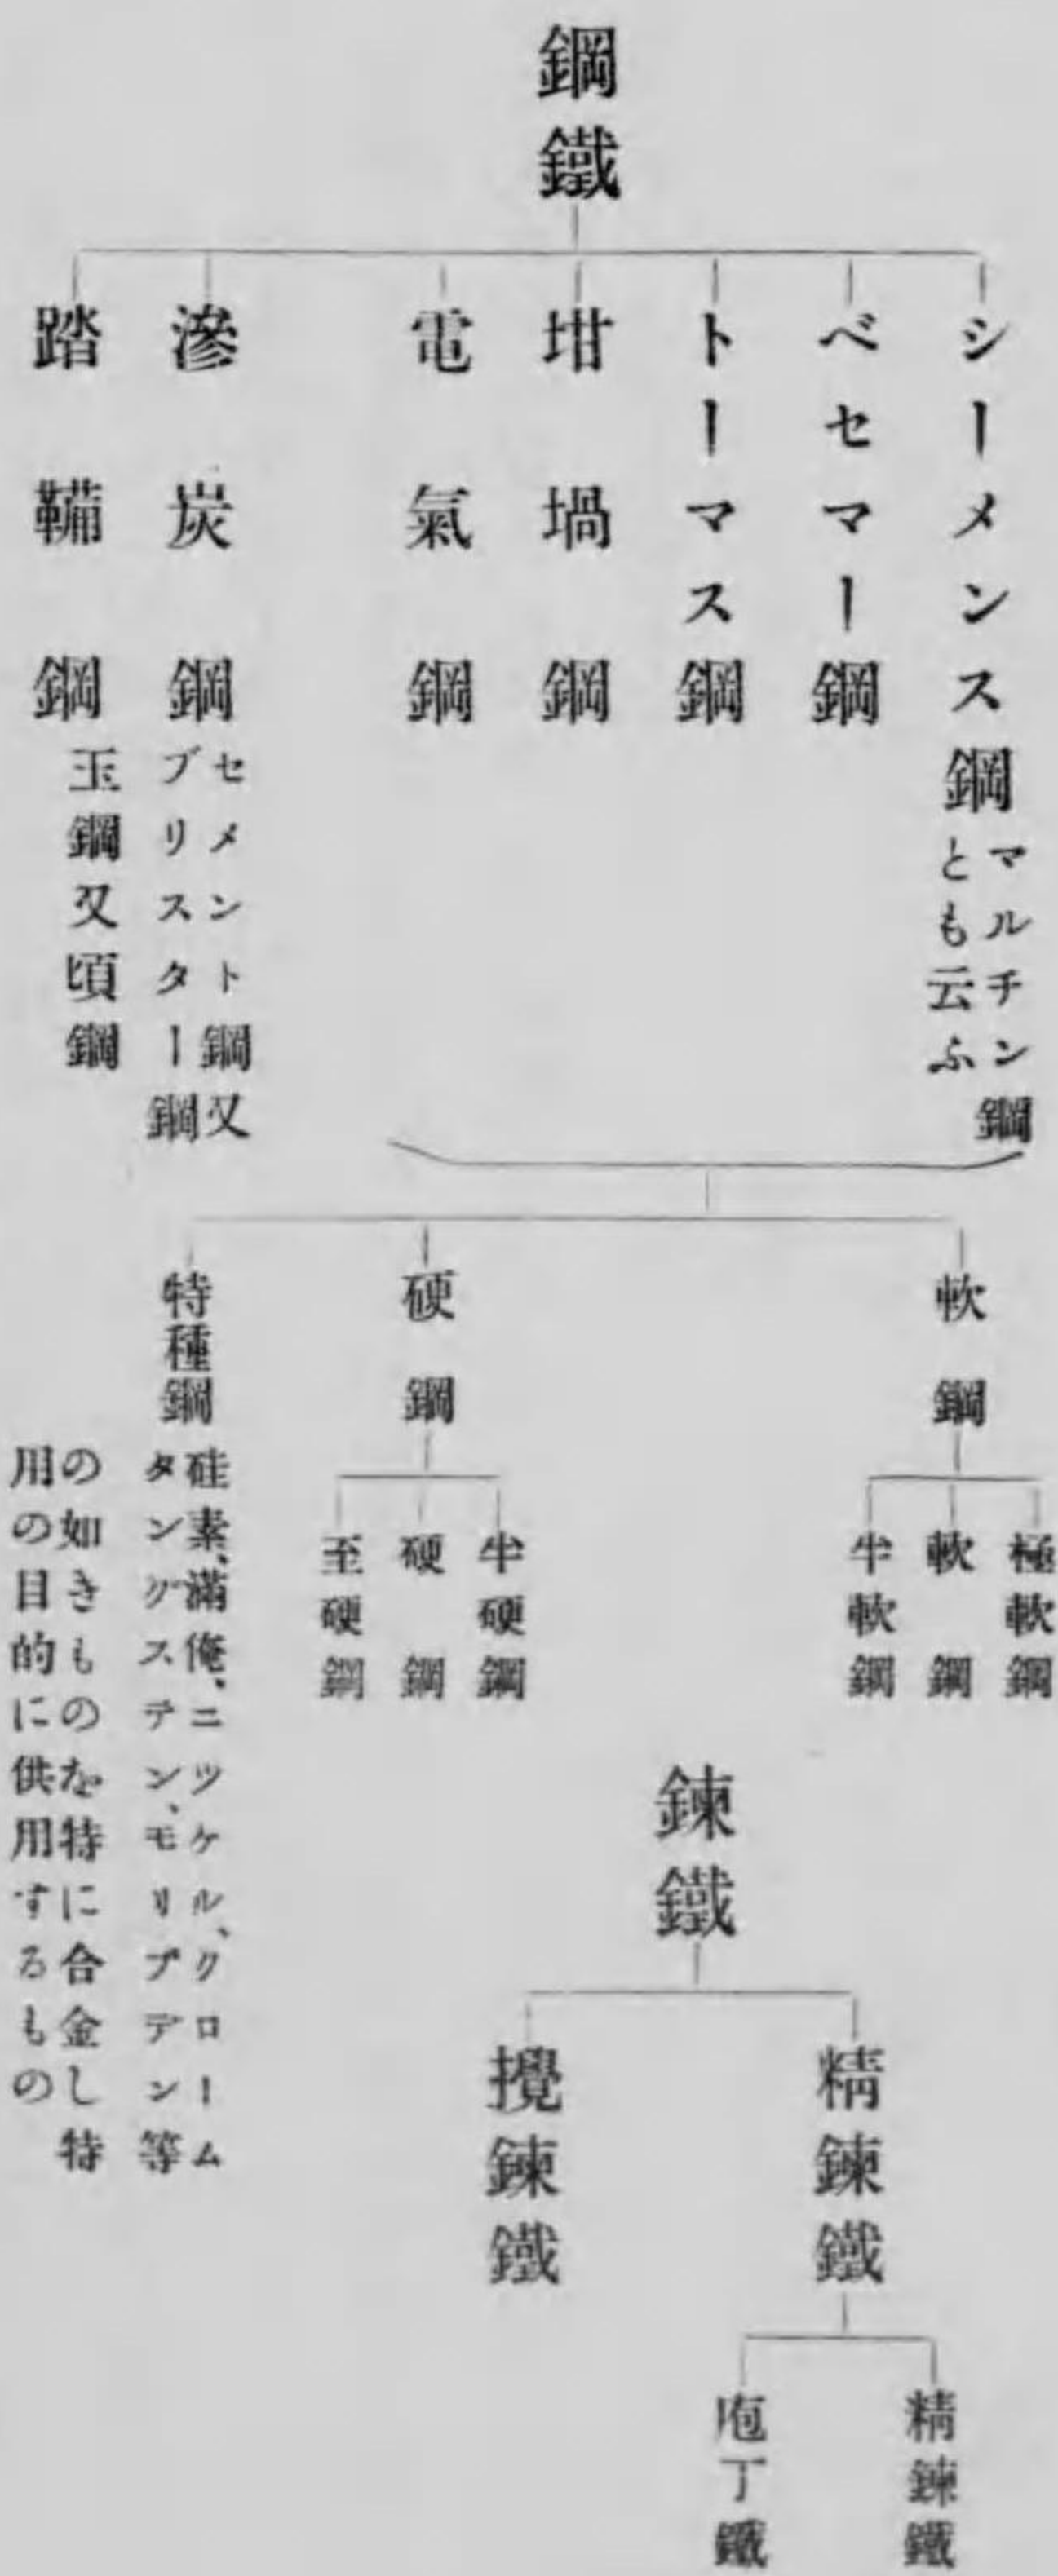 鋼鐵
シーメンス鋼
マルチン鋼
とも云ふ
ベセマー鋼
トーマス鋼
坩堝鋼
電氣鋼
滲炭鋼
セメント鋼又
ブリスター鋼
踏鞴鋼
玉鋼又頃鋼
軟鋼
極軟鋼
軟鋼
半軟鋼
硬鋼
半硬鋼
硬鋼
至硬鋼
特種鋼
硅素、滿俺、ニツケル、クローム
タングステン、モリブデン等
の如きものを特に合金し特
用の目的に供用するもの
鍊鐵
精鍊鐵
精鍊鐵
庖丁鐵
攪鍊鐵